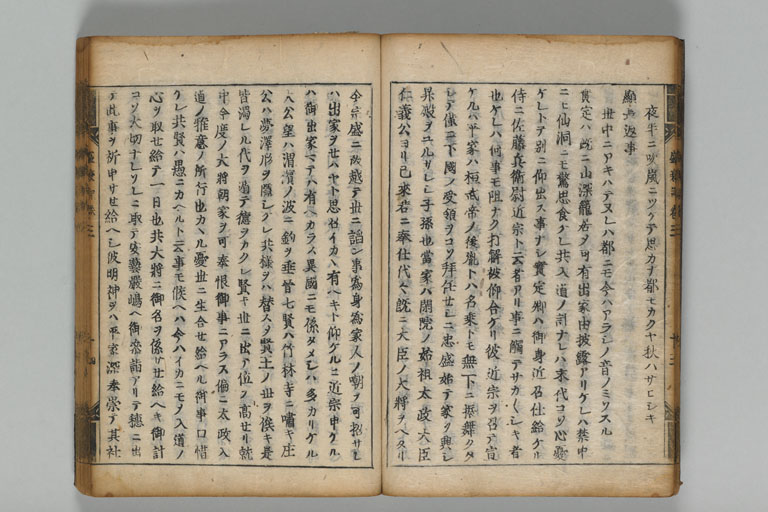 夜半ニ吹嵐ニツケテ思カナ都モカクヤ秋ハサビシキ
顕長返事
世中ニアキハテヌレハ都ニモ今ハアラシノ音ノミソスル
実定ハ既ニ山深籠居ヲ可有出家由披露アリケレハ禁中
ニモ仙洞ニモ驚思食ケレ共入道ノ計ナレハ末代コソ心憂
ケレトテ別ニ仰出ス事ナシ実定卿ハ御身近召仕給ケル
侍ニ佐藤兵衛尉近宗ト云者アリ事ニ觸テサカ〱シキ者
也ケレハ何事モ阻ナク打解被仰合ケリ彼近宗ヲ召テ宣
ケルハ平家ハ桓武帝ノ後胤トハ名乗トモ無下ニ振舞クタ
シテ僅ニ下國ノ受領ヲコソ拜任セシニ忠盛始テ家ヲ興シ
昇殿ヲユルサレシ子孫也當家ハ閑院ノ始祖太政大臣
仁義公ヨリ已來君ニ奉仕代々既ニ大臣ノ大将ヲヘタリ
今宗盛ニ被越テ世ニ謟ン事為身為家人ノ嘲ヲ可招サレ
ハ出家ヲセハヤト思セイカヽ有ヘキト仰ケルニ近宗申ケル
ハ御出家マテハ有ヘカラス異國ニモ係タメシハ多カリケル
太公望ハ渭濱ノ波ニ釣ヲ垂晉七賢ハ竹林寺ニ嘯キ庄
公ハ夢澤形ヲ隠シケレ共様ヲハ替ス賢王ノ世ヲ俟キ是
皆濁レル代ヲ遁テ德ヲカクシ賢キ世ニ出テ位ヲ高セリ就
中今度ノ大将朝家ヲ可奉恨御事ニアラス偏ニ太政入
道ノ雅意ノ所行也カヽル憂世ニ生合セ給ヘル御事口惜
ケレ共賢ハ愚ニカヘルト云事モ候ヘハ今ハイカニモシテ入道ノ
心ヲ取セ給テ一日也共大将ニ御名ヲ係サセ給ヘキ御計
コソ大切ナレソレニ取テ安藝嚴嶋ヘ御参詣アリテ穏ニ出
テ此事ヲ祈申サセ給ヘシ彼明神ヲハ平家深奉崇テ其社